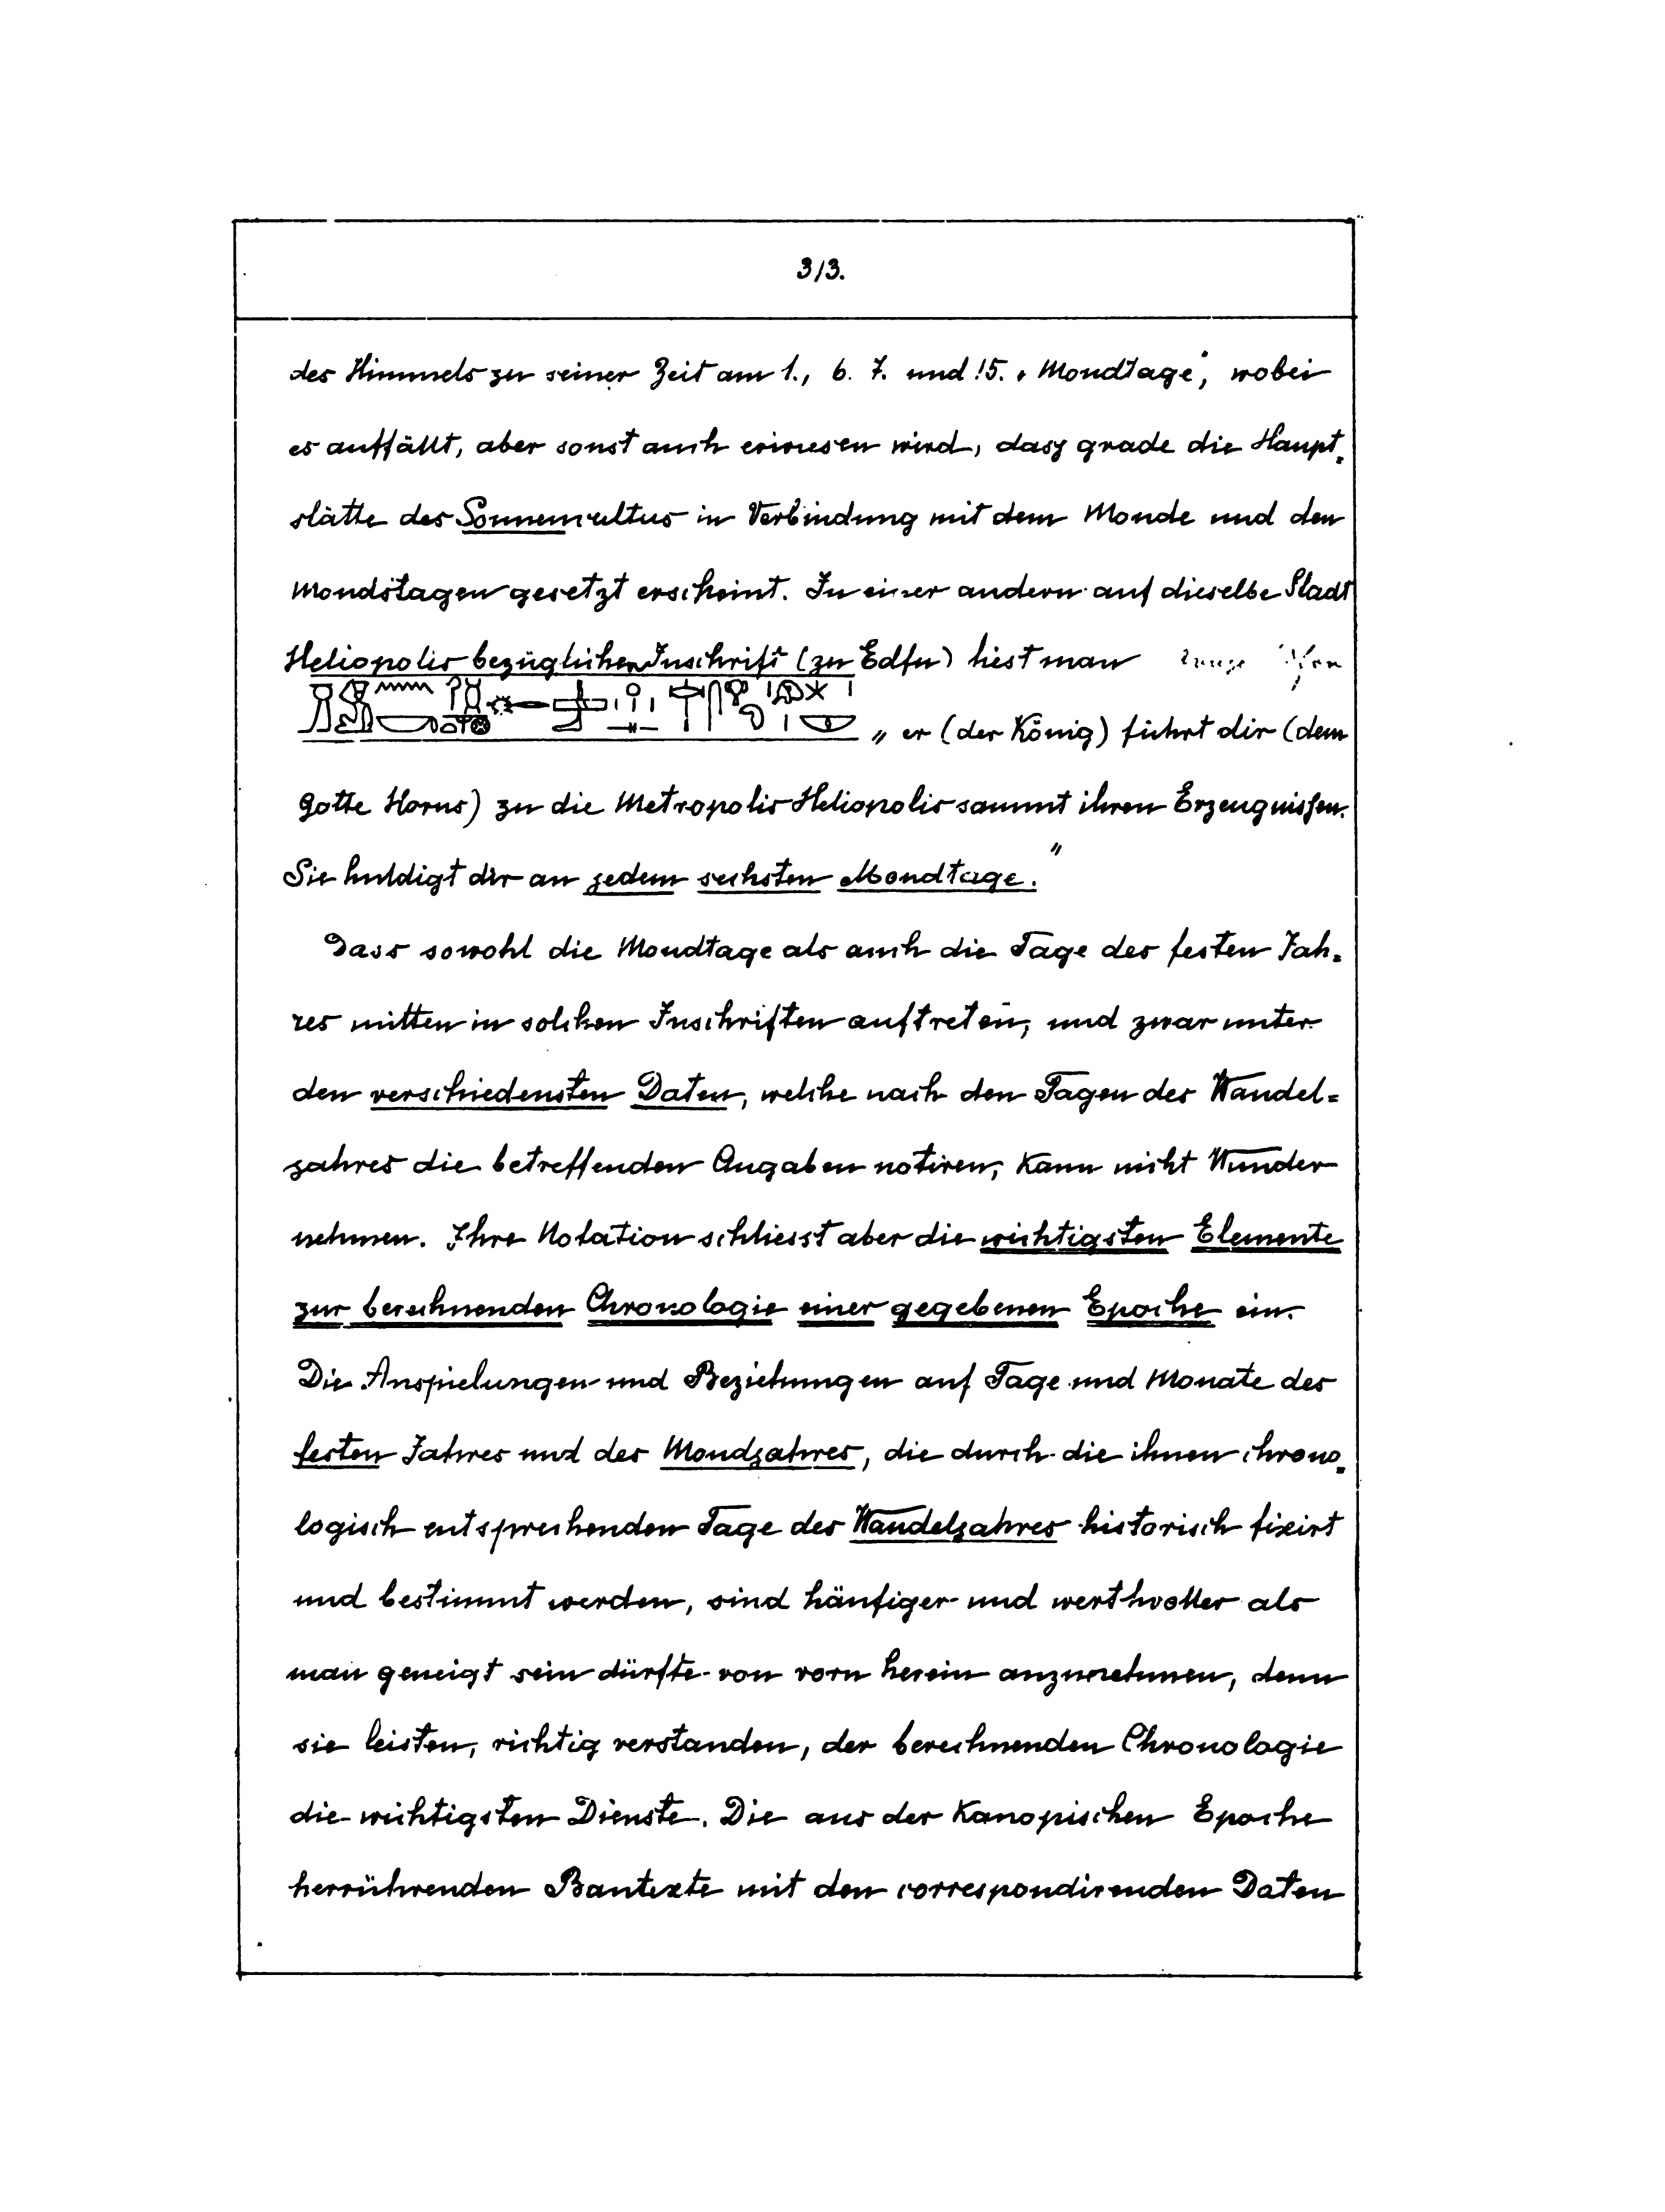 313.
des Himmels zu seiner Zeit am 1., 6. 7. und 15. „Mondtage“, wobei
es auffällt, aber sonst auch erwiesen wird, dasz grade die Haupt=
stätte des Sonnencultus in Verbindung mit dem Monde und den
Mondstagen gesetzt erscheint. In einer andern auf dieselbe Stadt
Heliopolis bezüglichen Inschrift (zu Edfu) liest man
„er (der König) führt dir (dem
Gotte Horus) zu die Metropolis Heliopolis sammt ihren Erzeugnissen.
Sie huldigt dir an jedem sechsten Mondtage.“
Dass sowohl die Mondtage als auch die Tage des festen Jah=
res mitten in solchen Inschriften auftreten, und zwar unter
den verschiedensten Daten, welche nach den Tagen des Wandel=
jahres die betreffenden Angaben notiren, kann nicht Wunder
nehmen. Ihre Notation schliesst aber die wichtigsten Elemente
zur berechnenden Chronologie einer gegebenen Epoche ein.
Die Anspielungen und Beziehungen auf Tage und Monate des
festen Jahres und des Mondjahres, die durch die ihnen chrono=
logisch entsprechenden Tage des Wandeljahres historisch fixirt
und bestimmt werden, sind häufiger und werthvoller als
man geneigt sein dürfte von vorn herein anzunehmen, denn
sie leisten, richtig verstanden, der berechnenden Chronologie
die wichtigsten Dienste. Die aus der Kanopischen Epoche
herrührenden Bautexte mit den correspondirenden Daten